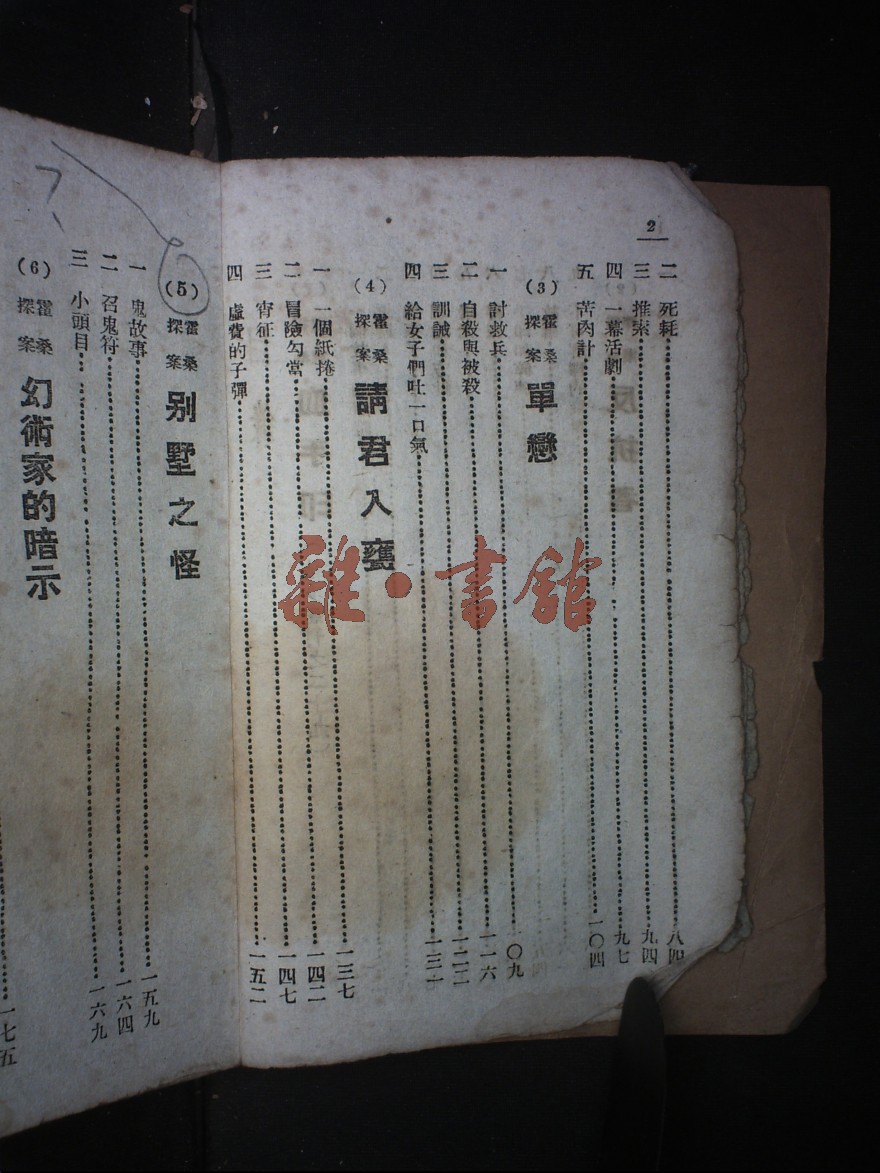 2
二 死耗 八四
三 推索 九四
四 一幕活劇 九七
五 苦肉計 一〇四
(3) 霍桑探案 單戀
一 討救兵 〇九
二 自殺與被殺 一一六
三 訓誡 一二二
四 給女子們吐一口氣 一三一
(4) 霍桑探案 請君入甕
一 一個紙捲 一三七
二 冒險勾當 一四二
三 宵征 一四七
四 虛費的子彈 一五二
(5) 霍桑探案 別墅之怪
一 鬼故事 一五九
二 召鬼符 一六四
三 小頭目 一六九
(6) 霍桑探案 幻術家的暗示
一七五
雜·書館